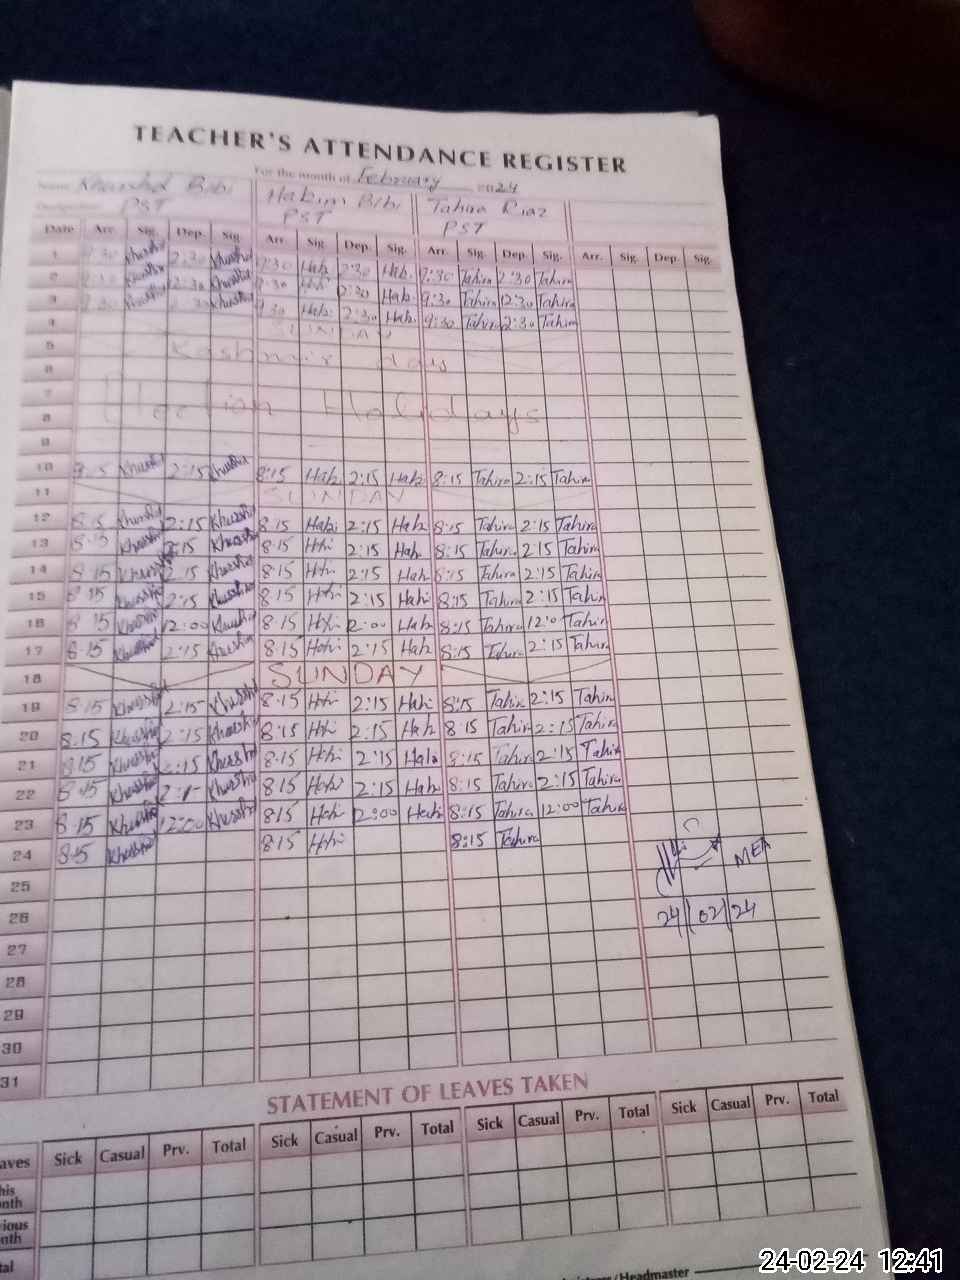 TEACHER'S ATTENDANCE REGISTER
For the month of February 2024
Name Khurshid Bibi Habim Bibi Tahira Riaz
Designation PST PST PST
Date Arr. Sig. Dep. Sig. Arr. Sig. Dep. Sig. Arr. Sig. Dep. Sig. Arr. Sig. Dep. Sig.
1 9:30 2:30 9:30 Hab 2:30 Hab. 9:30 Tahira 2:30 Tahira
2 9:30 2:30 9:30 Hab 2:30 Hab. 9:30 Tahira 2:30 Tahira
3 9:30 2:30 9:30 Hab. 2:30 Hab. 9:30 Tahira 2:30 Tahira
4 SUNDAY
5 Kashmir day
6
7
8 Election Holidays
9
10 8:15 2:15 8:15 Hab 2:15 Hab 8:15 Tahira 2:15 Tahira
11 SUNDAY
12 8:15 2:15 8:15 Habi 2:15 Hab 8:15 Tahira 2:15 Tahira
13 8:15 2:15 8:15 2:15 Hab. 8:15 Tahira 2:15 Tahira
14 8:15 2:15 8:15 2:15 Hab 8:15 Tahira 2:15 Tahira
15 8:15 2:15 8:15 2:15 Habi 8:15 Tahira 2:15 Tahira
16 8:15 12:00 8:15 12:00 Hab 8:15 Tahira 12:0 Tahira
17 8:15 2:15 8:15 Habi 2:15 Hab 8:15 Tahira 2:15 Tahira
18 SUNDAY
19 8:15 2:15 8:15 2:15 Habi 8:15 Tahira 2:15 Tahira
20 8:15 2:15 8:15 2:15 Hab 8:15 Tahira 2:15 Tahira
21 8:15 2:15 8:15 2:15 Hab 8:15 Tahira 2:15 Tahira
22 8:15 8:15 Habi 2:15 Hab 8:15 Tahira 2:15 Tahira
23 8:15 12:00 8:15 Habi 12:00 Habi 8:15 Tahira 12:00 Tahira
24 8:15 8:15 8:15 Tahira MEA
25
26 24/02/24
27
28
29
30
31
STATEMENT OF LEAVES TAKEN
aves Sick Casual Prv. Total Sick Casual Prv. Total Sick Casual Prv. Total Sick Casual Prv. Total
his
nth
ious
nth
tal
/Headmaster
24-02-24 12:41